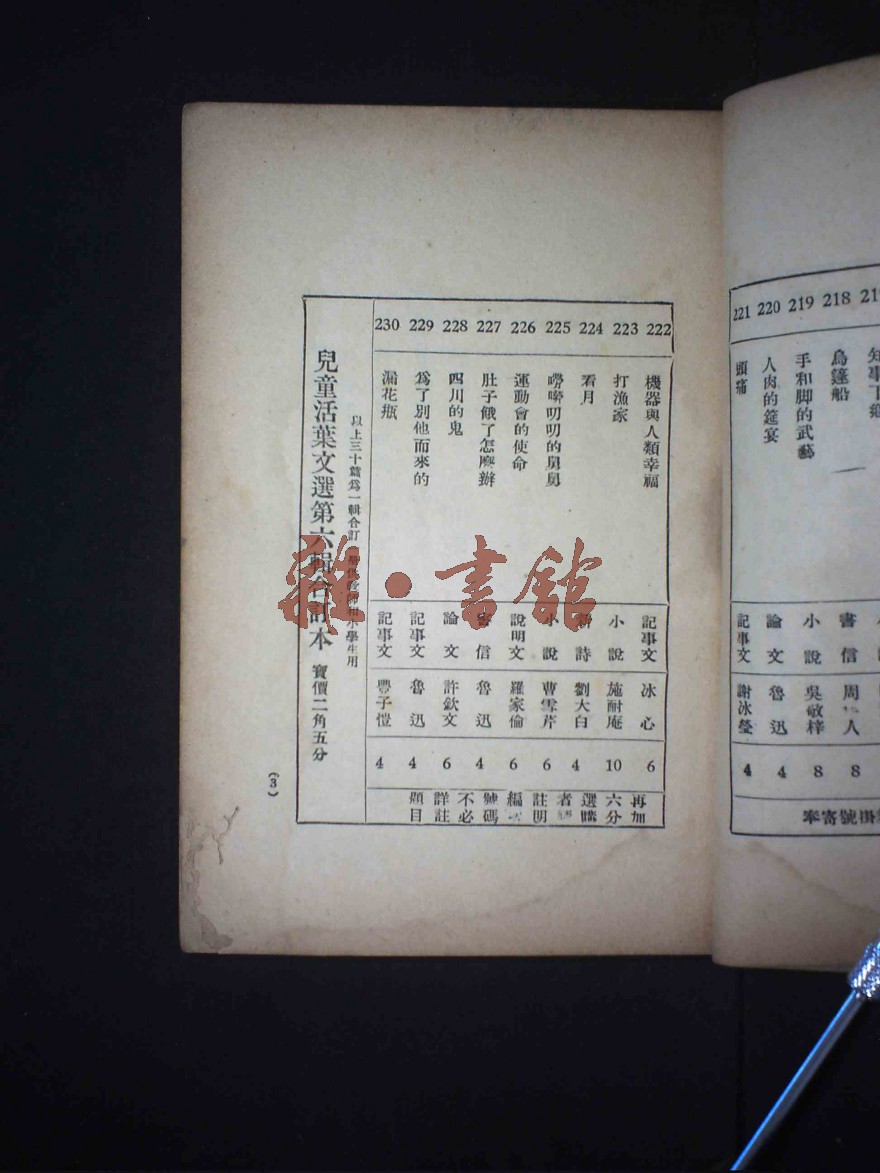 221 頭痛 記事文 謝冰瑩 4
220 人肉的筵宴 論文 魯迅 4
219 手和脚的武藝 小說 吳敬梓 8
218 烏篷船 書信 周 人 8
掛號寄奉
222 機器與人類幸福 記事文 冰心 6
223 打漁家 小說 施耐庵 10
224 看月 新詩 劉大白 4
225 嘮嘮叨叨的舅舅 小說 曹雪芹 6
226 運動會的使命 說明文 羅家倫 6
227 肚子餓了怎麽辦 書信 魯迅 4
228 四川的鬼 論文 許欽文 6
229 爲了別他而來的 記事文 魯迅 4
230 漏花瓶 記事文 豐子愷 4
再加
六分
選購
者
註明
編
號碼
不必
詳註
題目
以上三十篇爲一輯合訂 小學生用
兒童活葉文選第六輯合訂本 實價二角五分
(3)
雜·書館